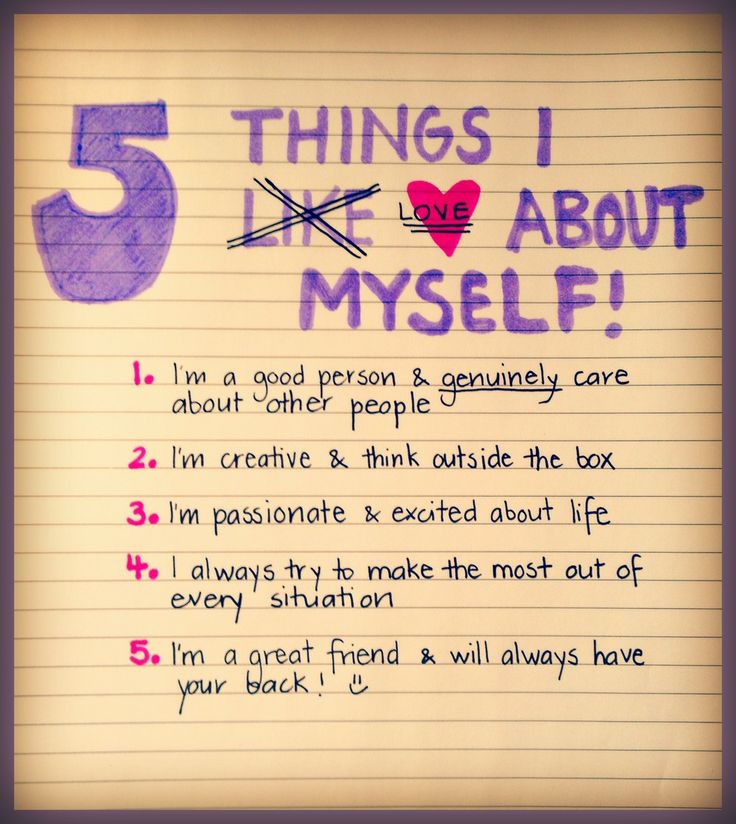 5 THINGS I
LIKE LOVE ABOUT
MYSELF!
1. I'm a good person & genuinely care
about other people
2. I'm creative & think outside the box
3. I'm passionate & excited about life
4. I always try to make the most out of
every situation
5. I'm a great friend & will always have
your back! :)